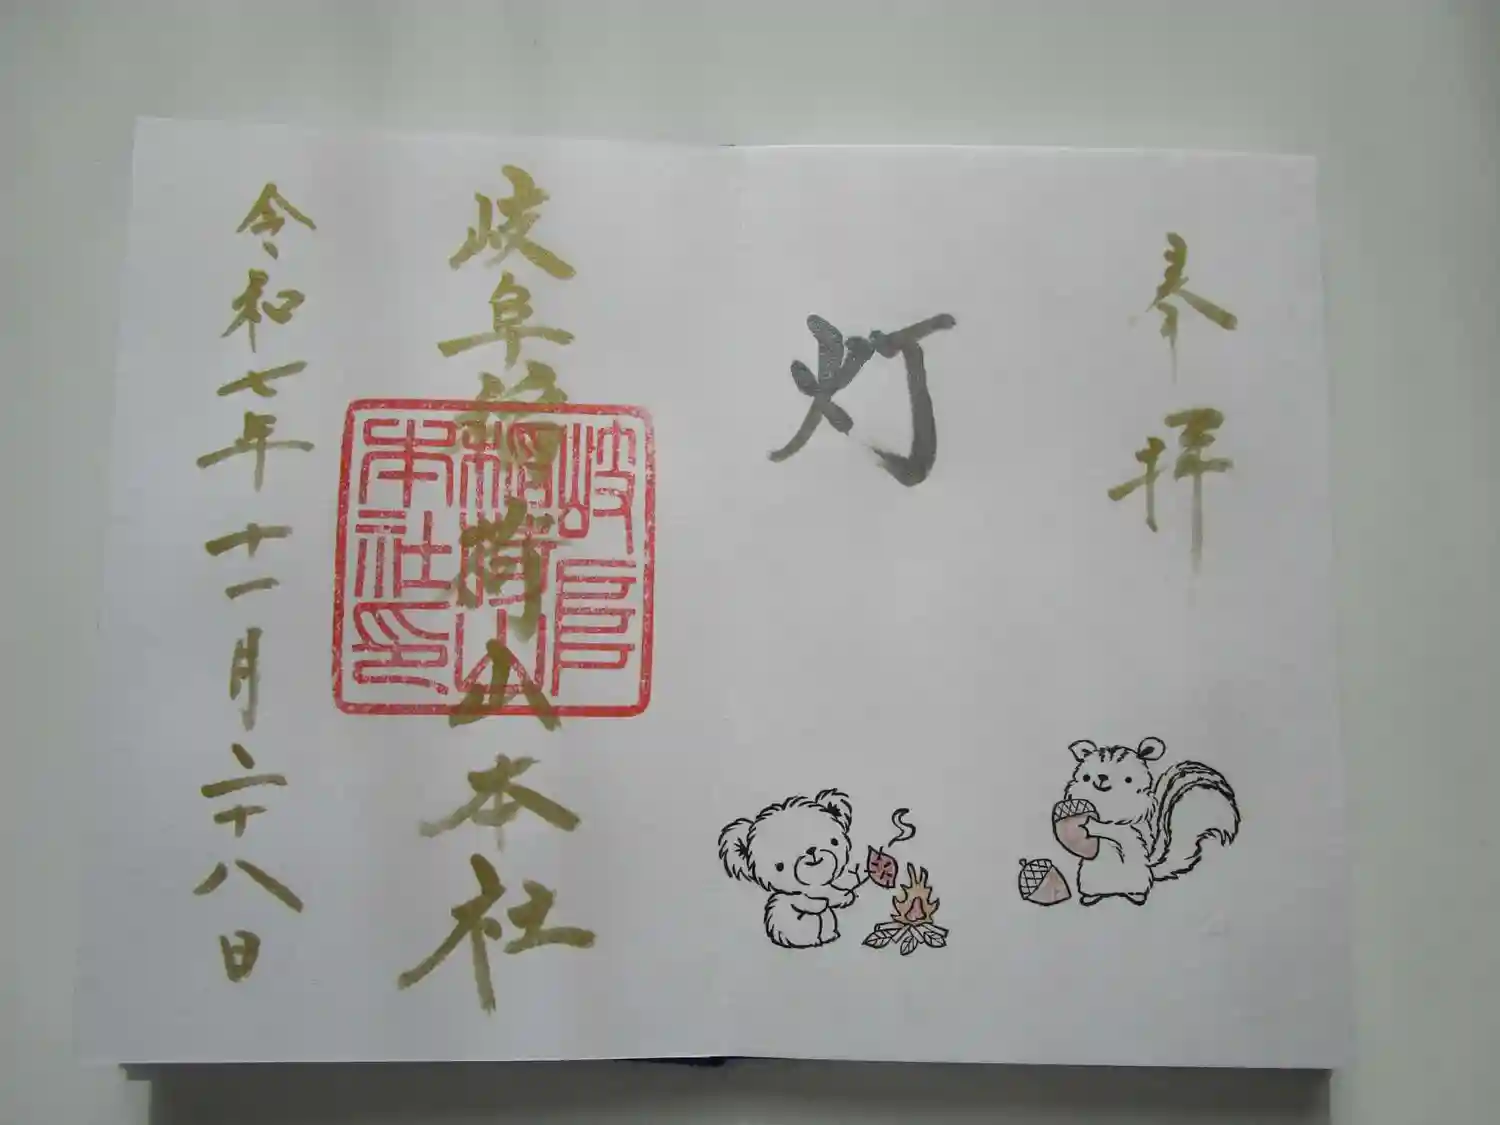 奉拝
灯
岐阜稲荷山本社
岐阜稲荷山本社印
令和七年十一月二十八日